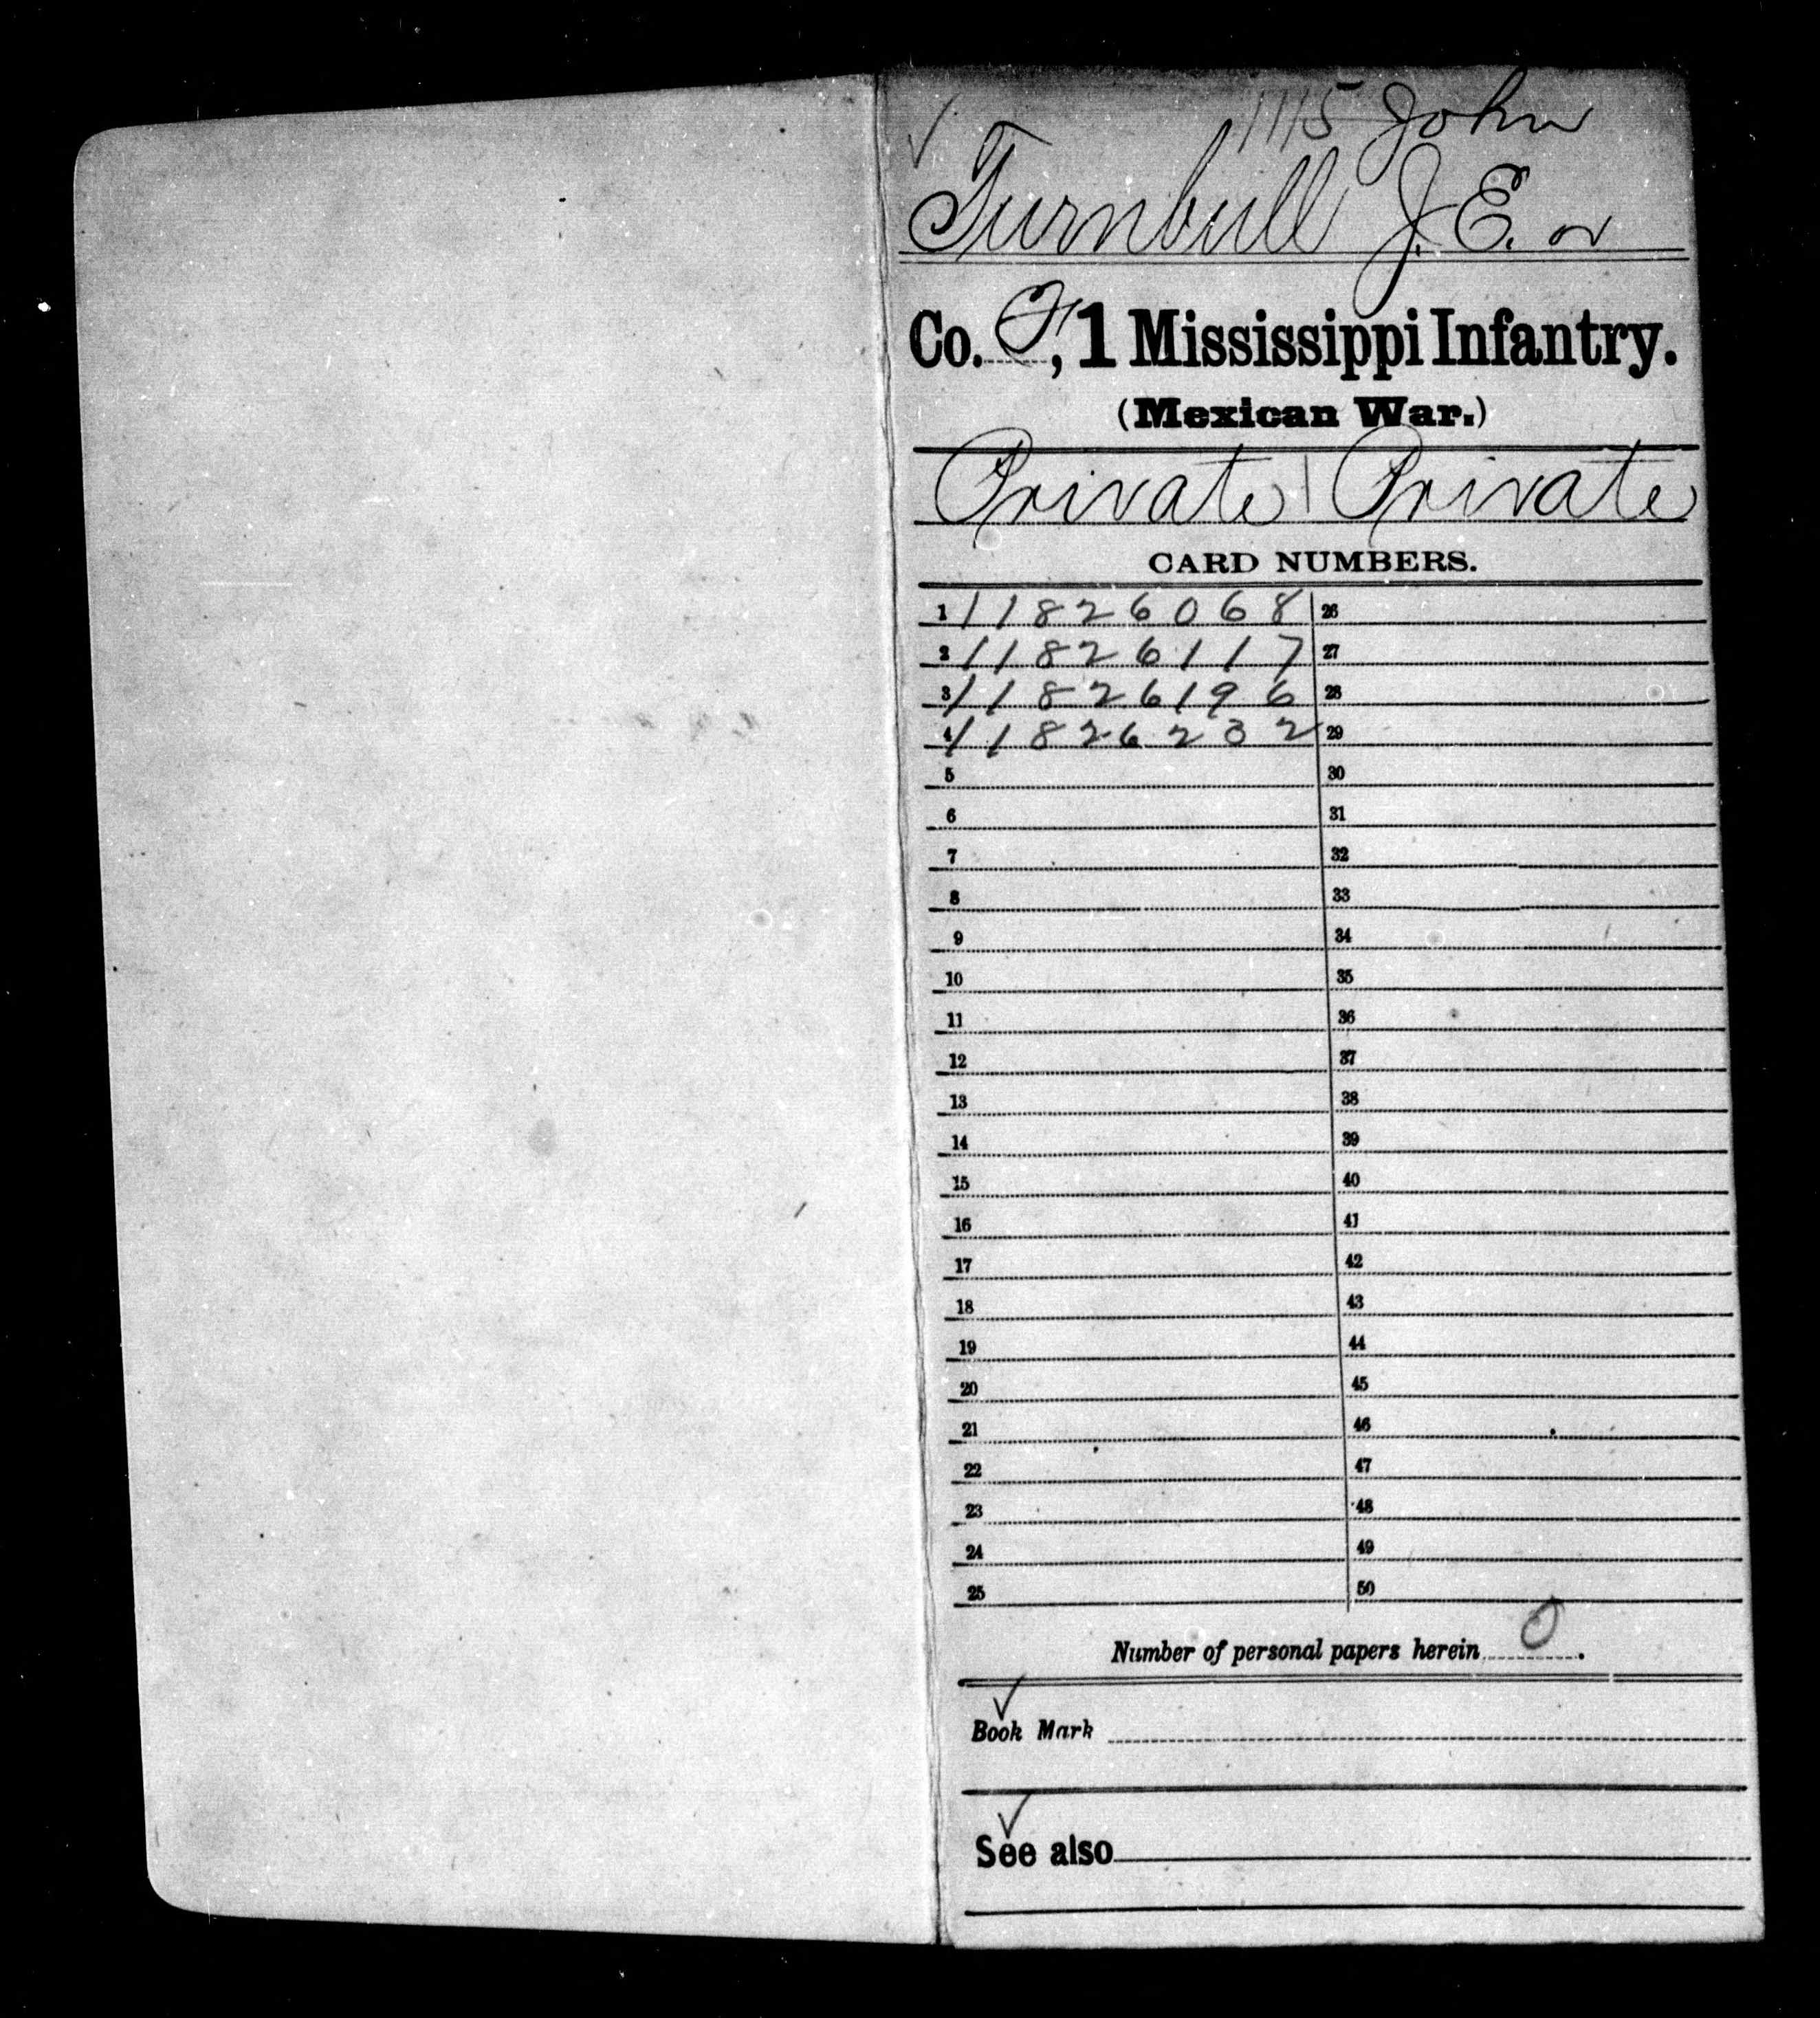 1115 John
Turnbull J. E. or
Co. F, 1 Mississippi Infantry.
(Mexican War.)
Private | Private
CARD NUMBERS.
1 11826068 26
2 11826117 27
3 11826196 28
4 11826232 29
5 30
6 31
7 32
8 33
9 34
10 35
11 36
12 37
13 38
14 39
15 40
16 41
17 42
18 43
19 44
20 45
21 46
22 47
23 48
24 49
25 50
Number of personal papers herein 0.
Book Mark
See also